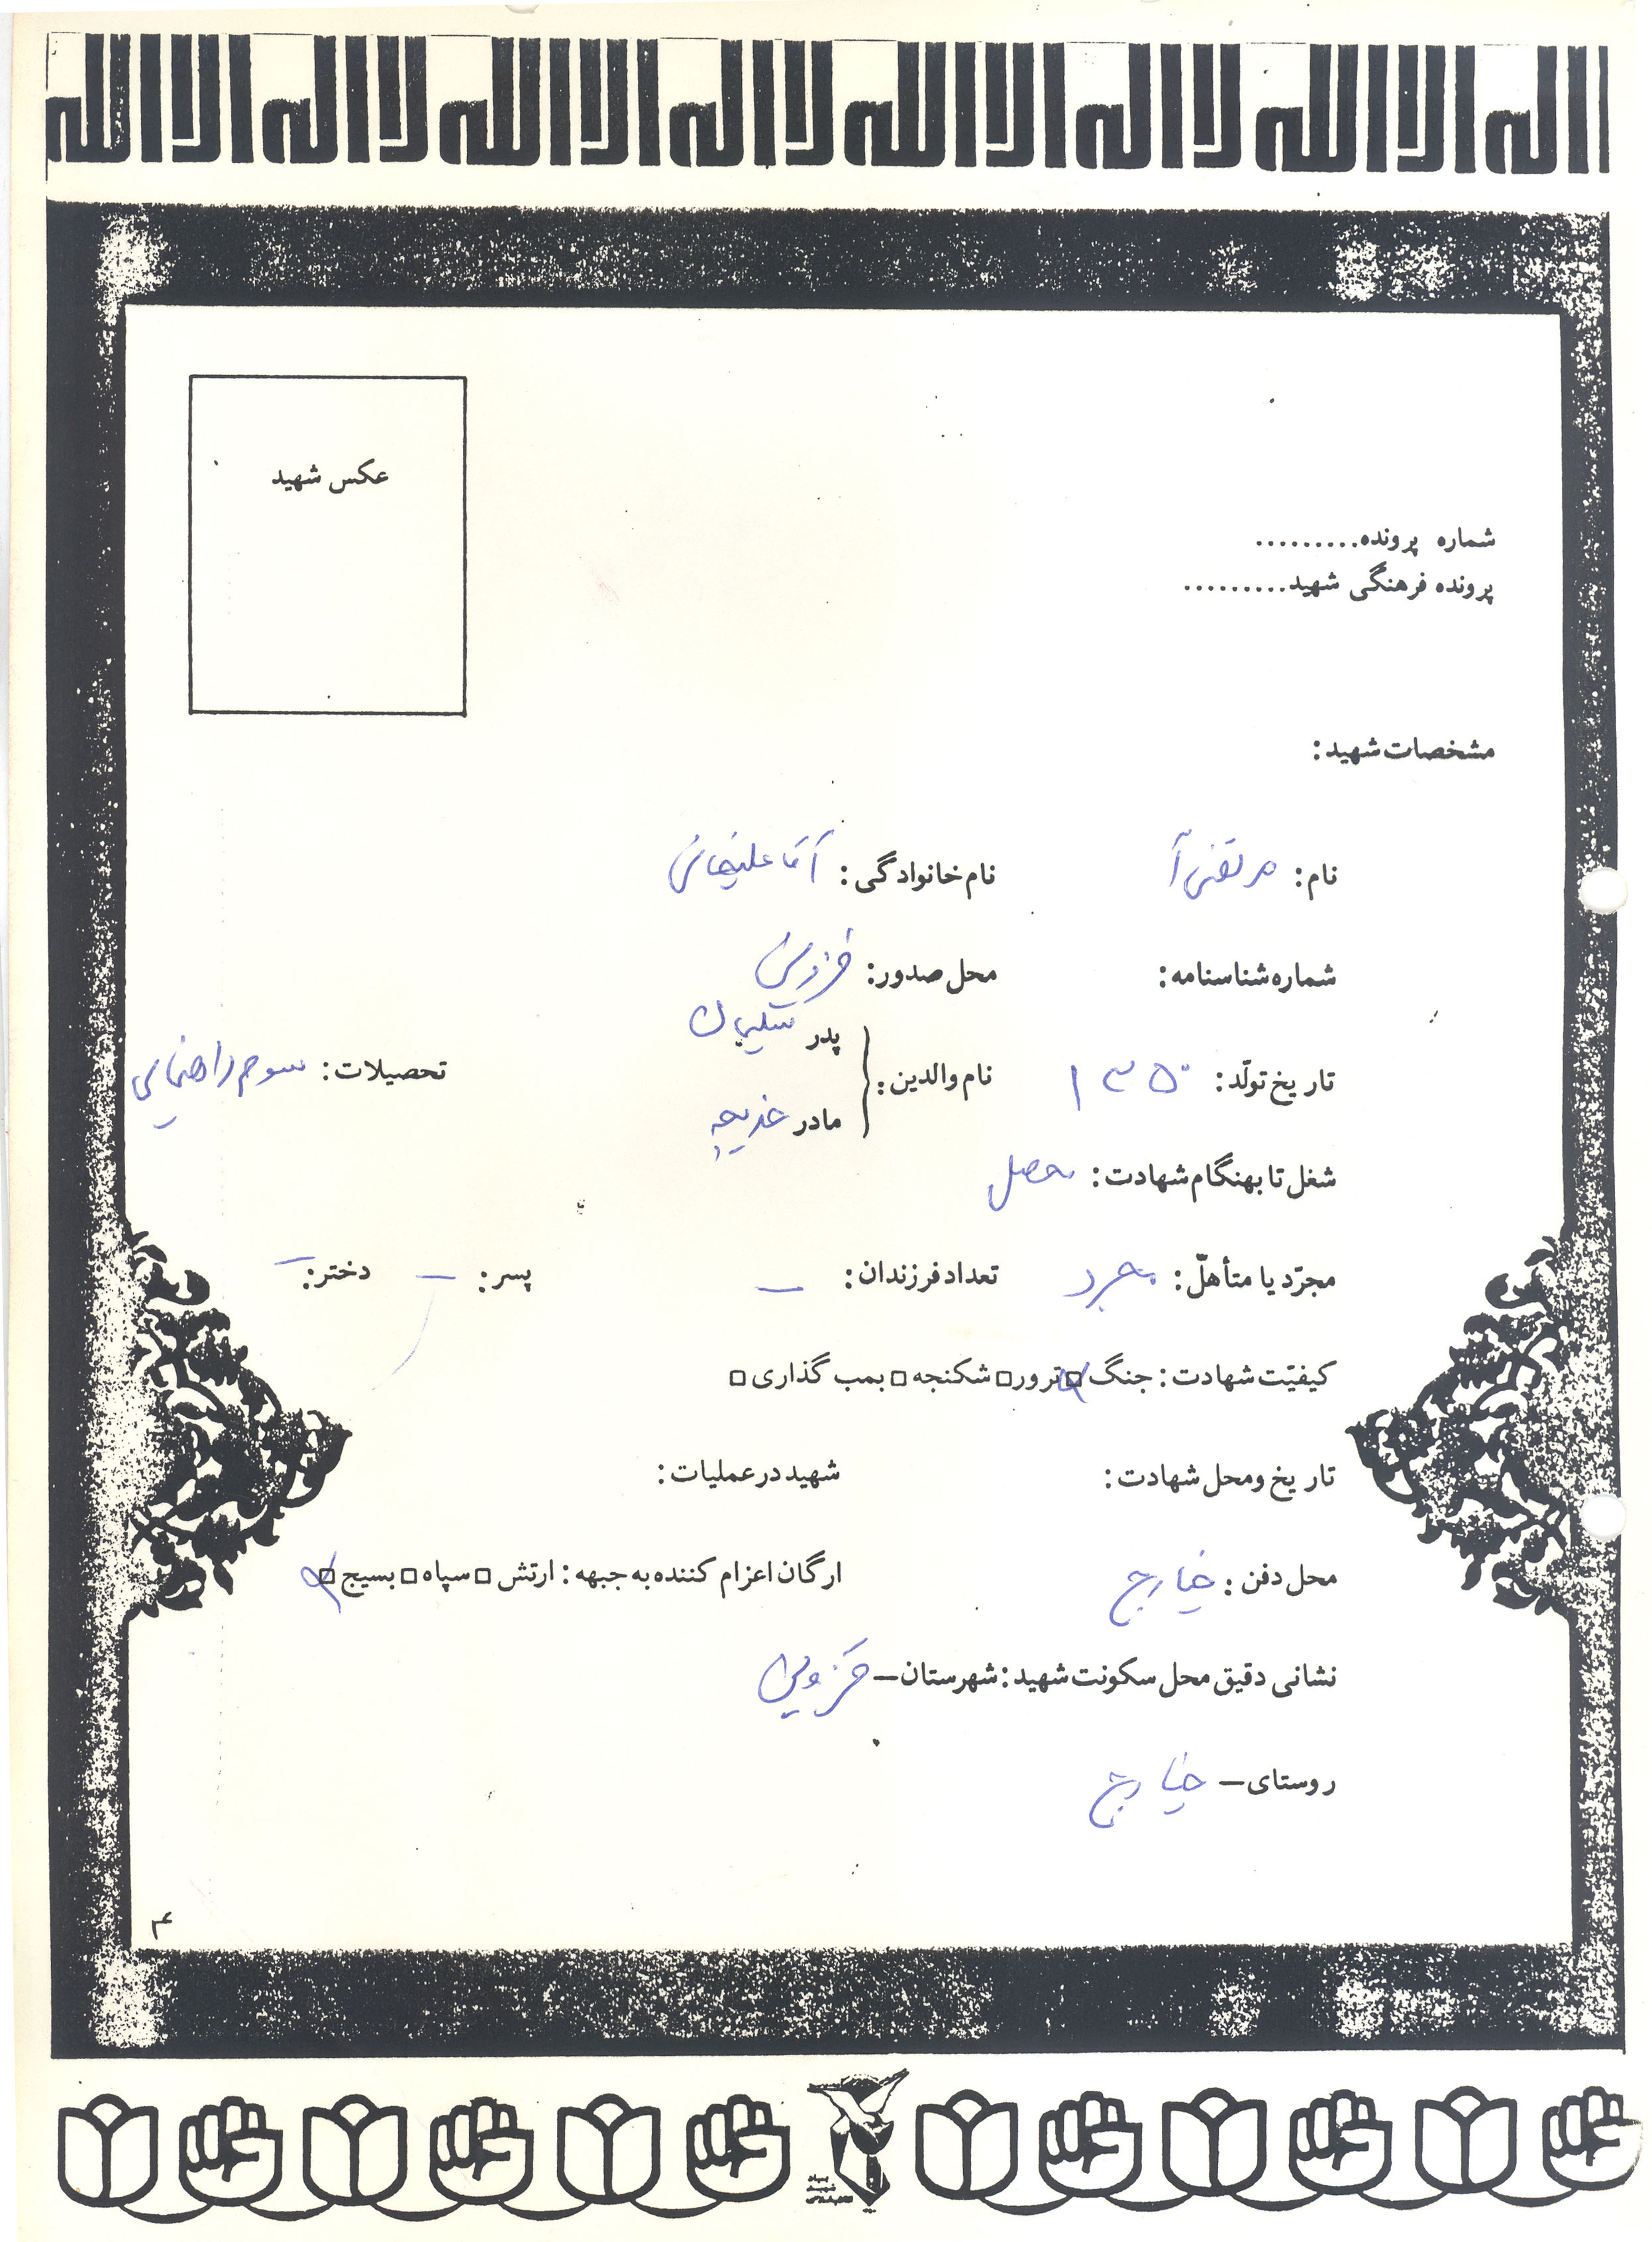 لا اله الا الله لا اله الا الله لا اله الا الله لا اله
عکس شهید
شماره پرونده.........
پرونده فرهنگی شهید.........
مشخصات شهید:
نام: مرتضی نام خانوادگی: آقا علیخانی
شماره شناسنامه: محل صدور: قزوین
تاریخ تولّد: ۱۳۵۰ نام والدین: پدر سلیمان مادر خدیجه تحصیلات: سوم راهنمایی
شغل تا بهنگام شهادت: محصل
مجرّد یا متأهلّ: مجرد تعداد فرزندان: — پسر: — دختر: —
کیفیّت شهادت: جنگ ☑ ترور □ شکنجه □ بمب گذاری □
تاریخ ومحل شهادت: شهید در عملیات:
محل دفن: خیارج ارگان اعزام کننده به جبهه: ارتش □ سپاه □ بسیج ☑
نشانی دقیق محل سکونت شهید: شهرستان— قزوین
روستای— خیارج
۴
بنیاد
شهید
انقلاب اسلامی